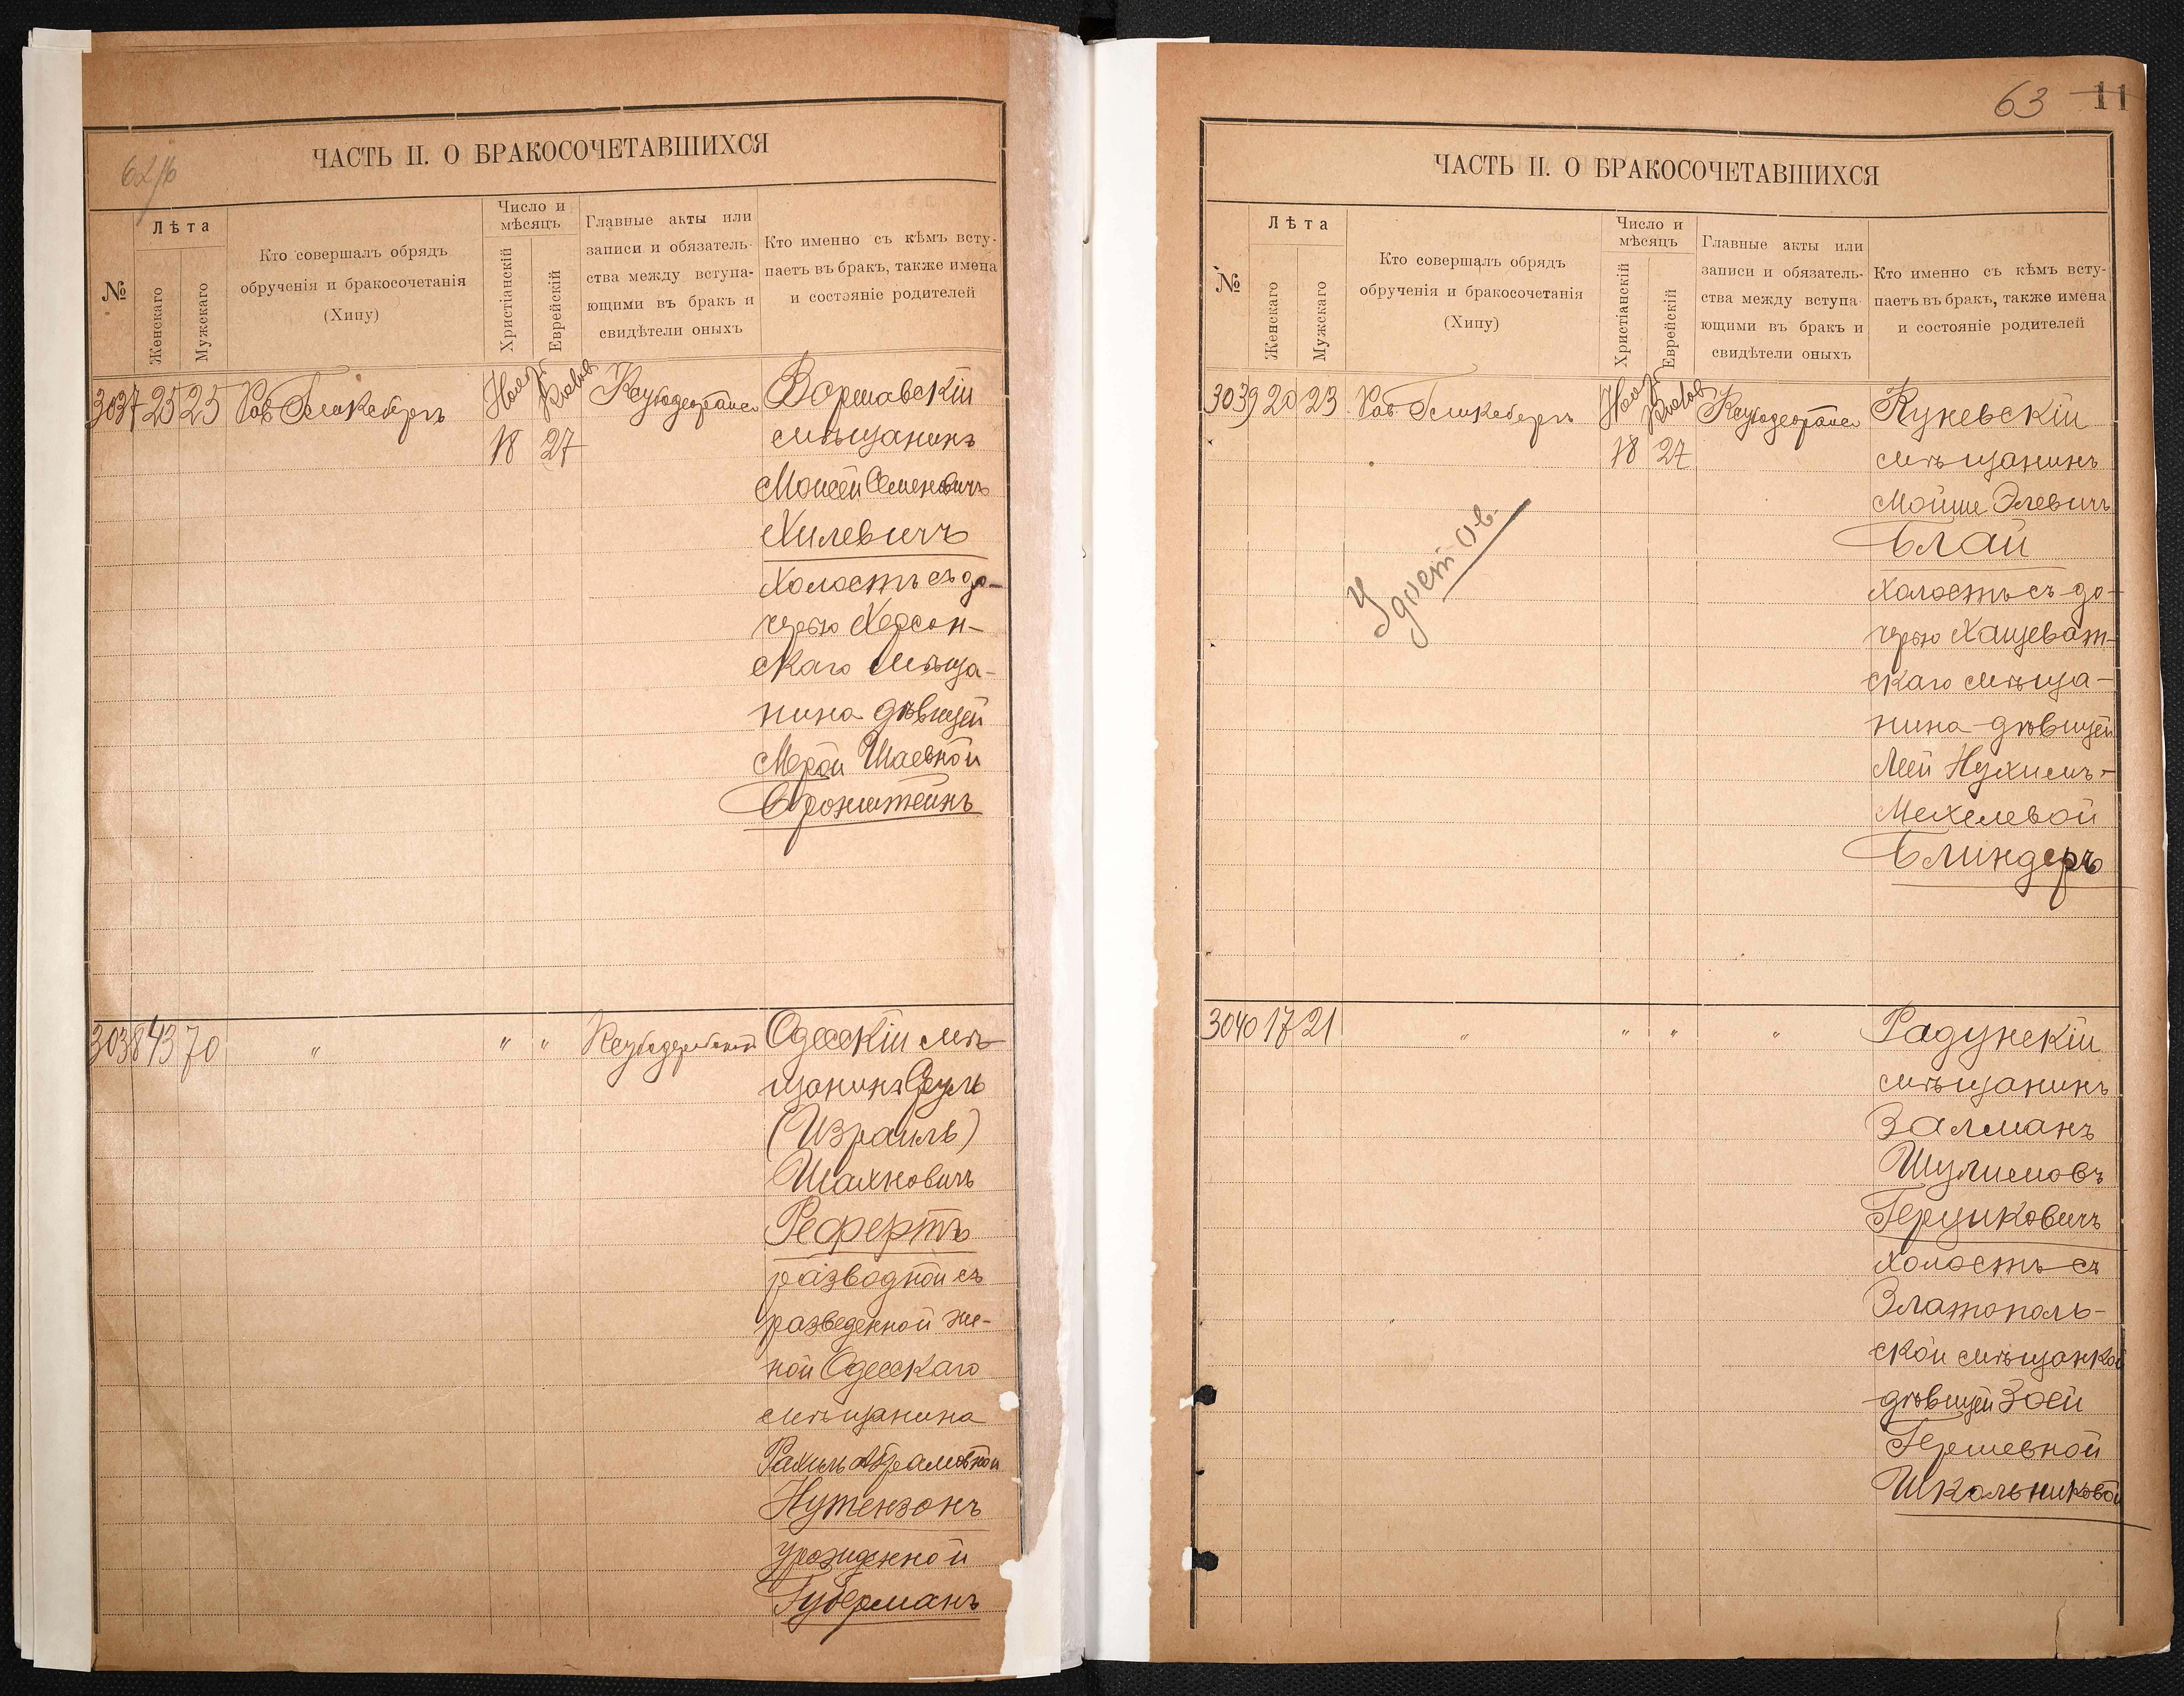 62 об
ЧАСТЬ II. О БРАКОСОЧЕТАВШИХСЯ
№
Лѣта
Женскаго
Мужскаго
Кто совершалъ обрядъ
обрученія и бракосочетанія
(Хипу)
Число и
мѣсяцъ
Христіанскій
Еврейскій
Главные акты или
записи и обязатель-
ства между вступа-
ющими въ бракъ и
свидѣтели оныхъ
Кто именно съ кѣмъ всту-
паетъ въ бракъ, также имена
и состояніе родителей
3037 25 25
Нояб
18 27
Варшавскій
мѣщанинъ
Моисей Семеновичъ
Хилевичъ
холостъ съ до-
черью Херсон-
скаго мѣща-
нина дѣвицей
Мерой Шаевной
Бронштейнъ
3038 43 70 " " "
Одесскій мѣ-
щанинъ Сруль
(Израиль)
Шахновичъ
Рефертъ
разводной съ
разведенной же-
ной Одесскаго
мѣщанина
Рахиль Абрамовной
Нутензонъ
урожденной
Губерманъ
63 11
ЧАСТЬ II. О БРАКОСОЧЕТАВШИХСЯ
№
Лѣта
Женскаго
Мужскаго
Кто совершалъ обрядъ
обрученія и бракосочетанія
(Хипу)
Число и
мѣсяцъ
Христіанскій
Еврейскій
Главные акты или
записи и обязатель-
ства между вступа-
ющими въ бракъ и
свидѣтели оныхъ
Кто именно съ кѣмъ всту-
паетъ въ бракъ, также имена
и состояніе родителей
3039 20 23
Нояб
18 27
Удостов.
Куневскій
мѣщанинъ
Мойше Элевичъ
Блай
холостъ съ до-
черью Хащеват-
скаго мѣща-
нина дѣвицей
Леей Нухимъ-
Мехелевой
Блиндеръ
3040 17 21 " " " "
Радунскій
мѣщанинъ
Залманъ
Шулимовъ
Герциковичъ
холостъ съ
Златополь-
ской мѣщанкой
дѣвицей Зоей
Гершевной
Школьниковой